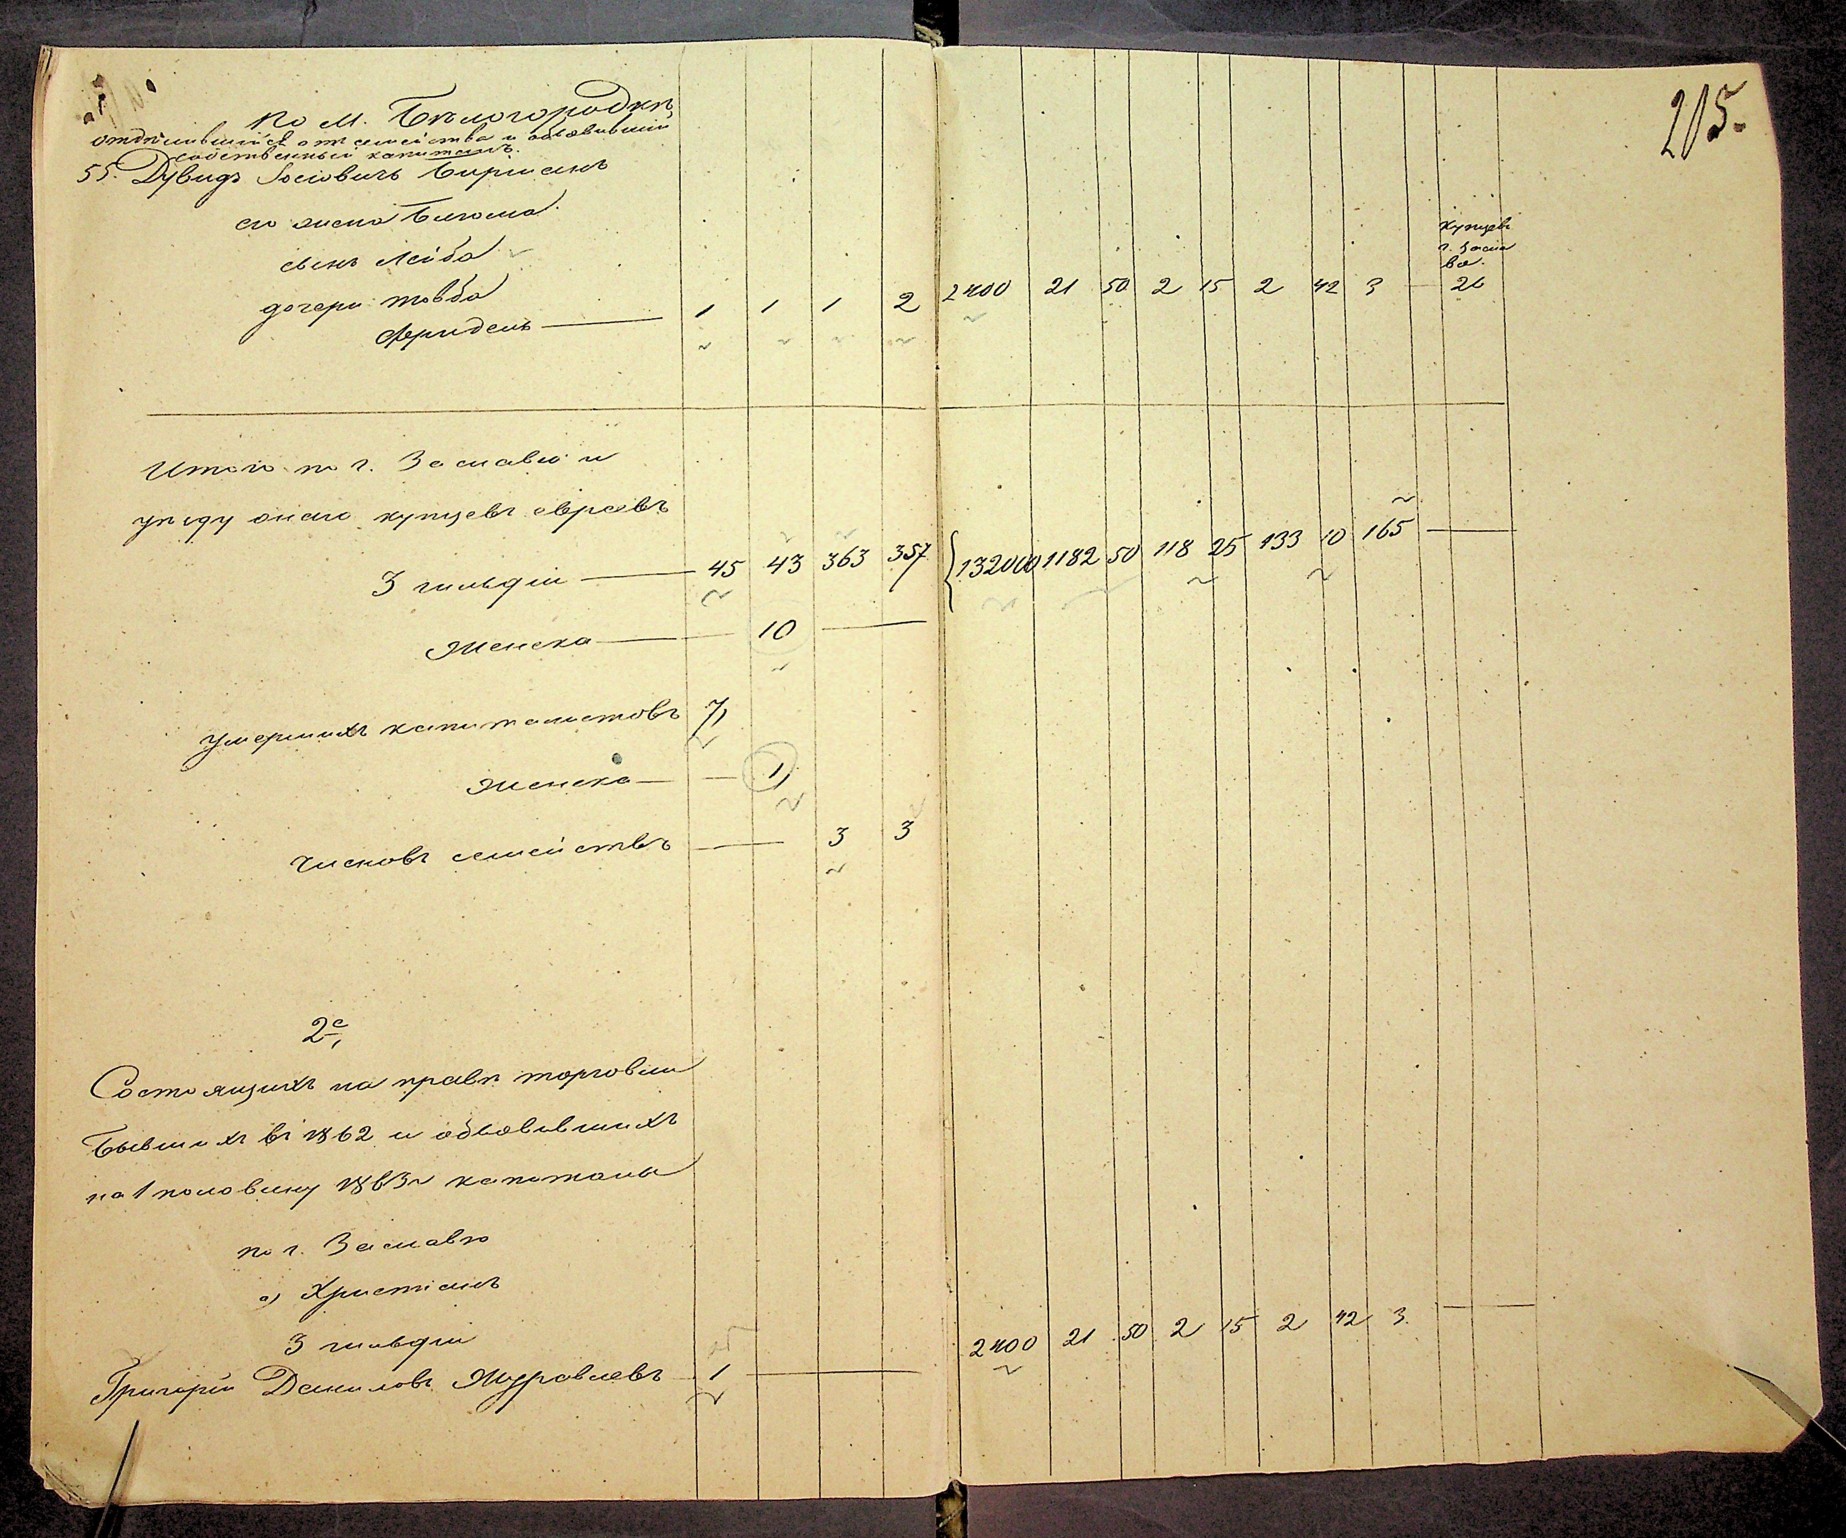 215.
по м. Бѣлогородкѣ
отдѣлившійся отъ семейства и объявившій
собственный капиталъ.
55. Дувидъ Іосіовичъ Бирманъ
его жена
сынъ Лейба
дочери Товба
Фридель 1 1 1 2 2400 21 50 2 15 2 42 3 — 26
купцовъ
г. Засла
вля.
Итого по г. Заславлю и
уѣзду онаго купцовъ евреевъ
3 гильдіи — 45 43 363 357 { 132000 1182 50 118 25 133 10 165 —
женска — 10 —
умершихъ капиталистовъ 7,
женска — 1,
членовъ семействъ — 3 3
2е,
Состоящихъ на правѣ торговли
бывшихъ въ 1862 и объявившихъ
на 1 половину 1863 г капиталы
по г. Заславлю
а) Христіанъ
3 гильдіи
Григорій Даниловъ Журавлевъ 1 — 2400 21 50 2 15 2 42 3. —